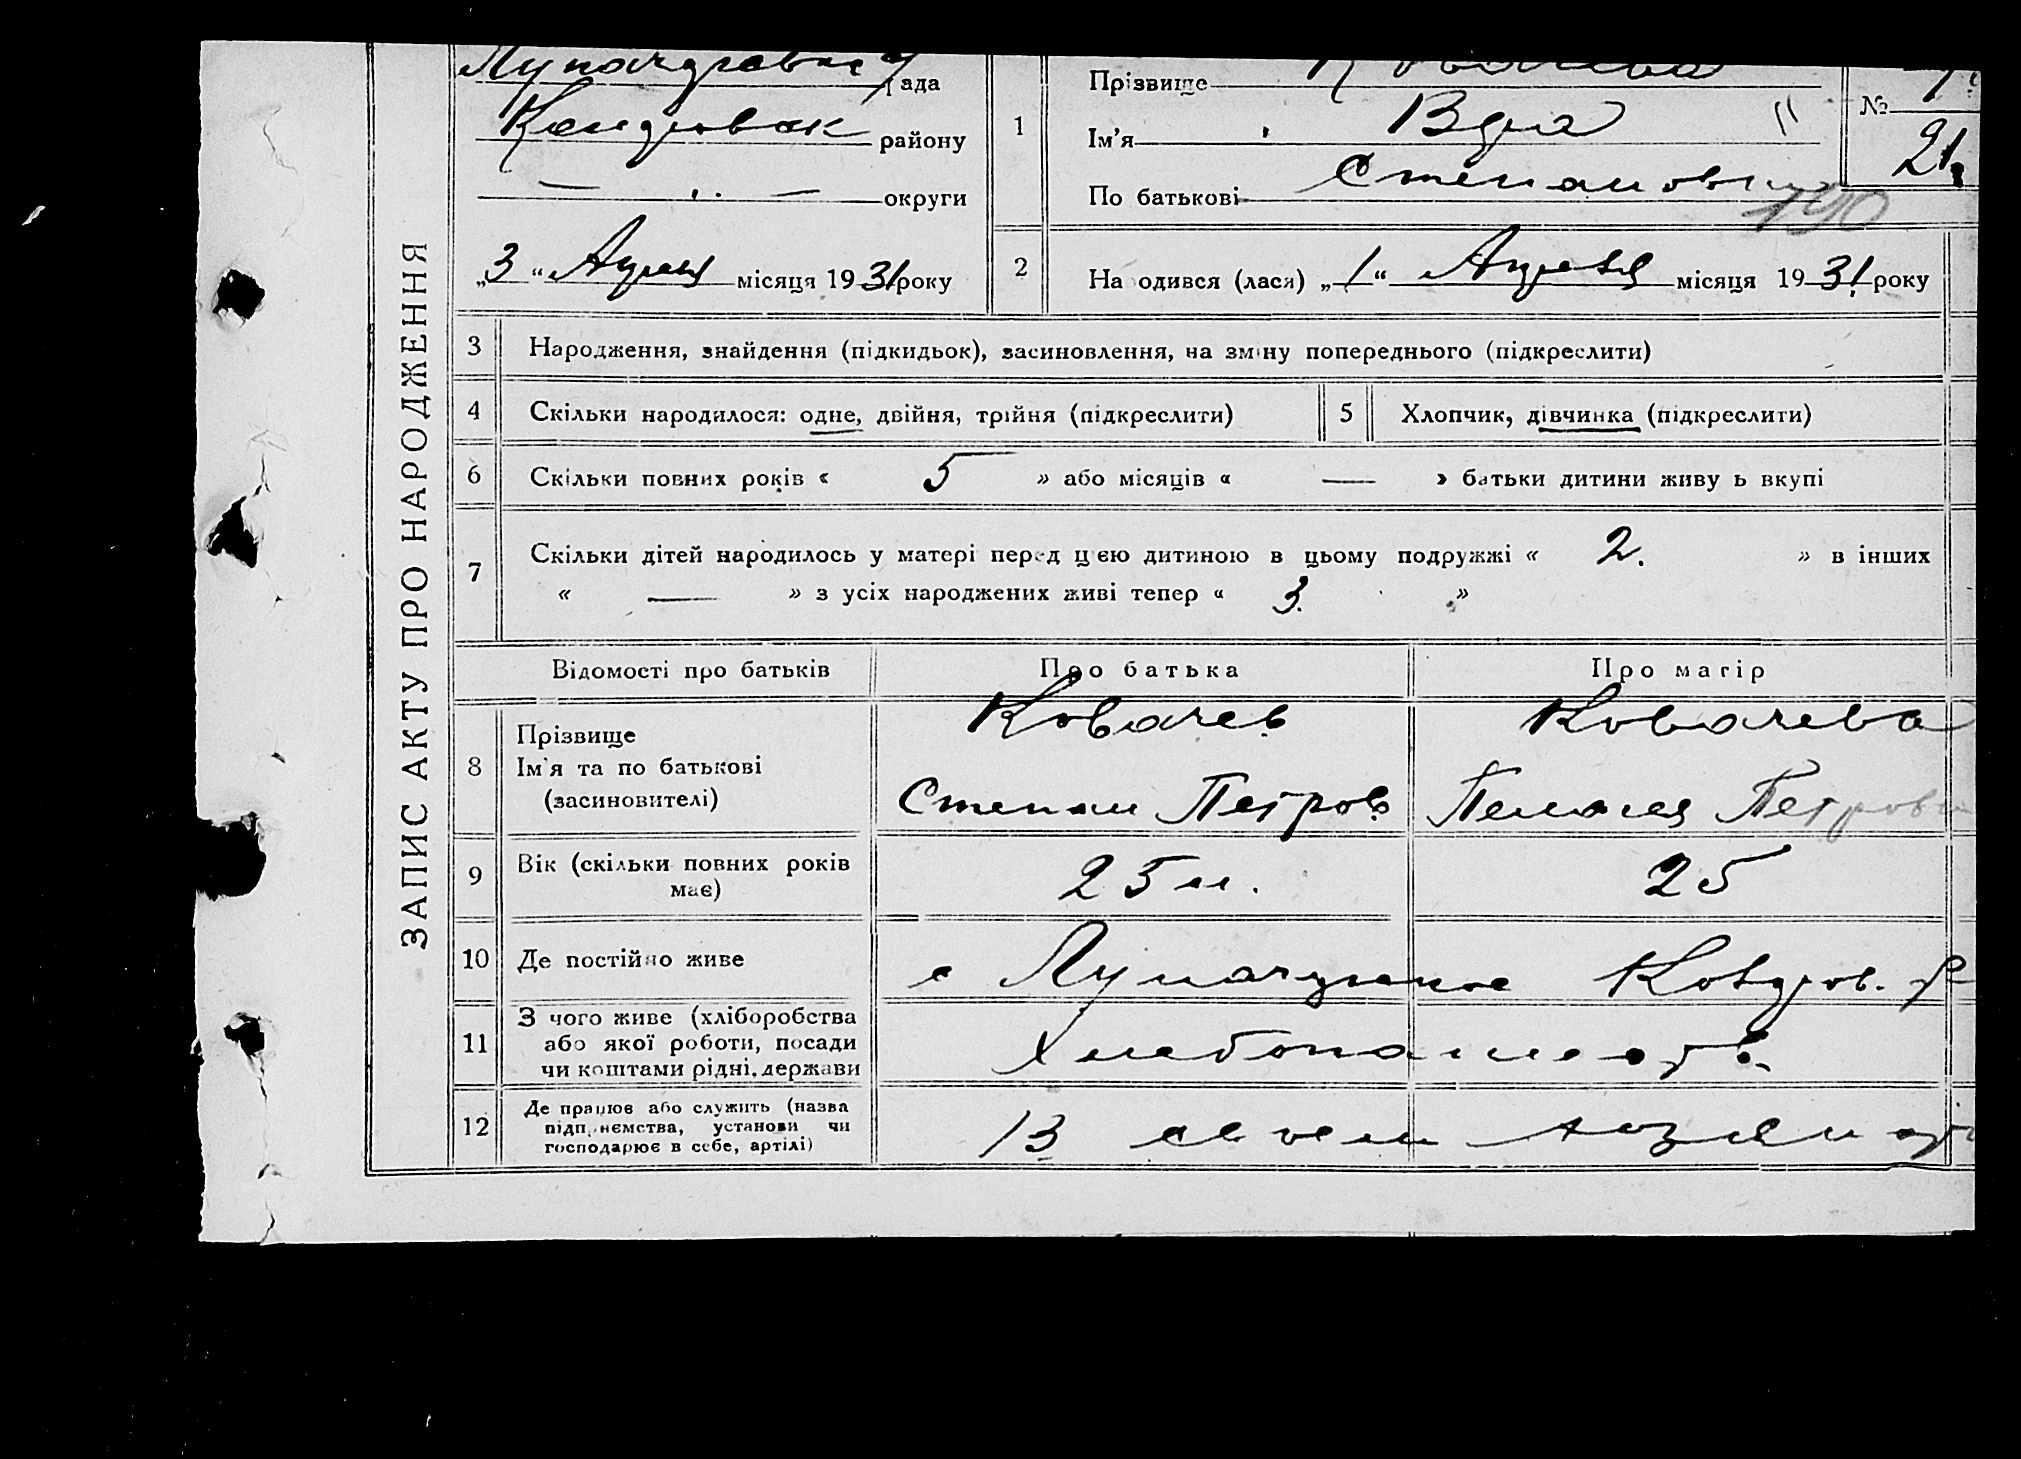 ЗАПИС АКТУ ПРО НАРОДЖЕННЯ
рада
району
округи
„3“ Апреля місяця 1931 року
1
Прізвище Ковачева
Ім'я
По батькові
№
21
190
2
Народився (лася) „1“ Апреля місяця 1931 року
3 Народження, знайдення (підкидьок), засиновлення, на зміну попереднього (підкреслити)
4 Скільки народилося: одне, двійня, трійня (підкреслити)
5 Хлопчик, дівчинка (підкреслити)
6 Скільки повних років « 5 » або місяців « — » батьки дитини живуть вкупі
7 Скільки дітей народилось у матері перед цією дитиною в цьому подружжі « 2. » в інших
« — » з усіх народжених живі тепер « 3. »
Відомості про батьків Про батька Про матір
8 Прізвище
Ім'я та по батькові
(засиновителі)
Ковачев
Степан Петров.
Ковачева
Пелагея Петровн
9 Вік (скільки повних років
має)
25 л.
25
10 Де постійно живе
с
11 З чого живе (хліборобства
або якої роботи, посади
чи коштами рідні, держави
Хлебопашеств.
12 Де працює або служить (назва
підприємства, установи чи
господарює в себе, артілі)
В своем